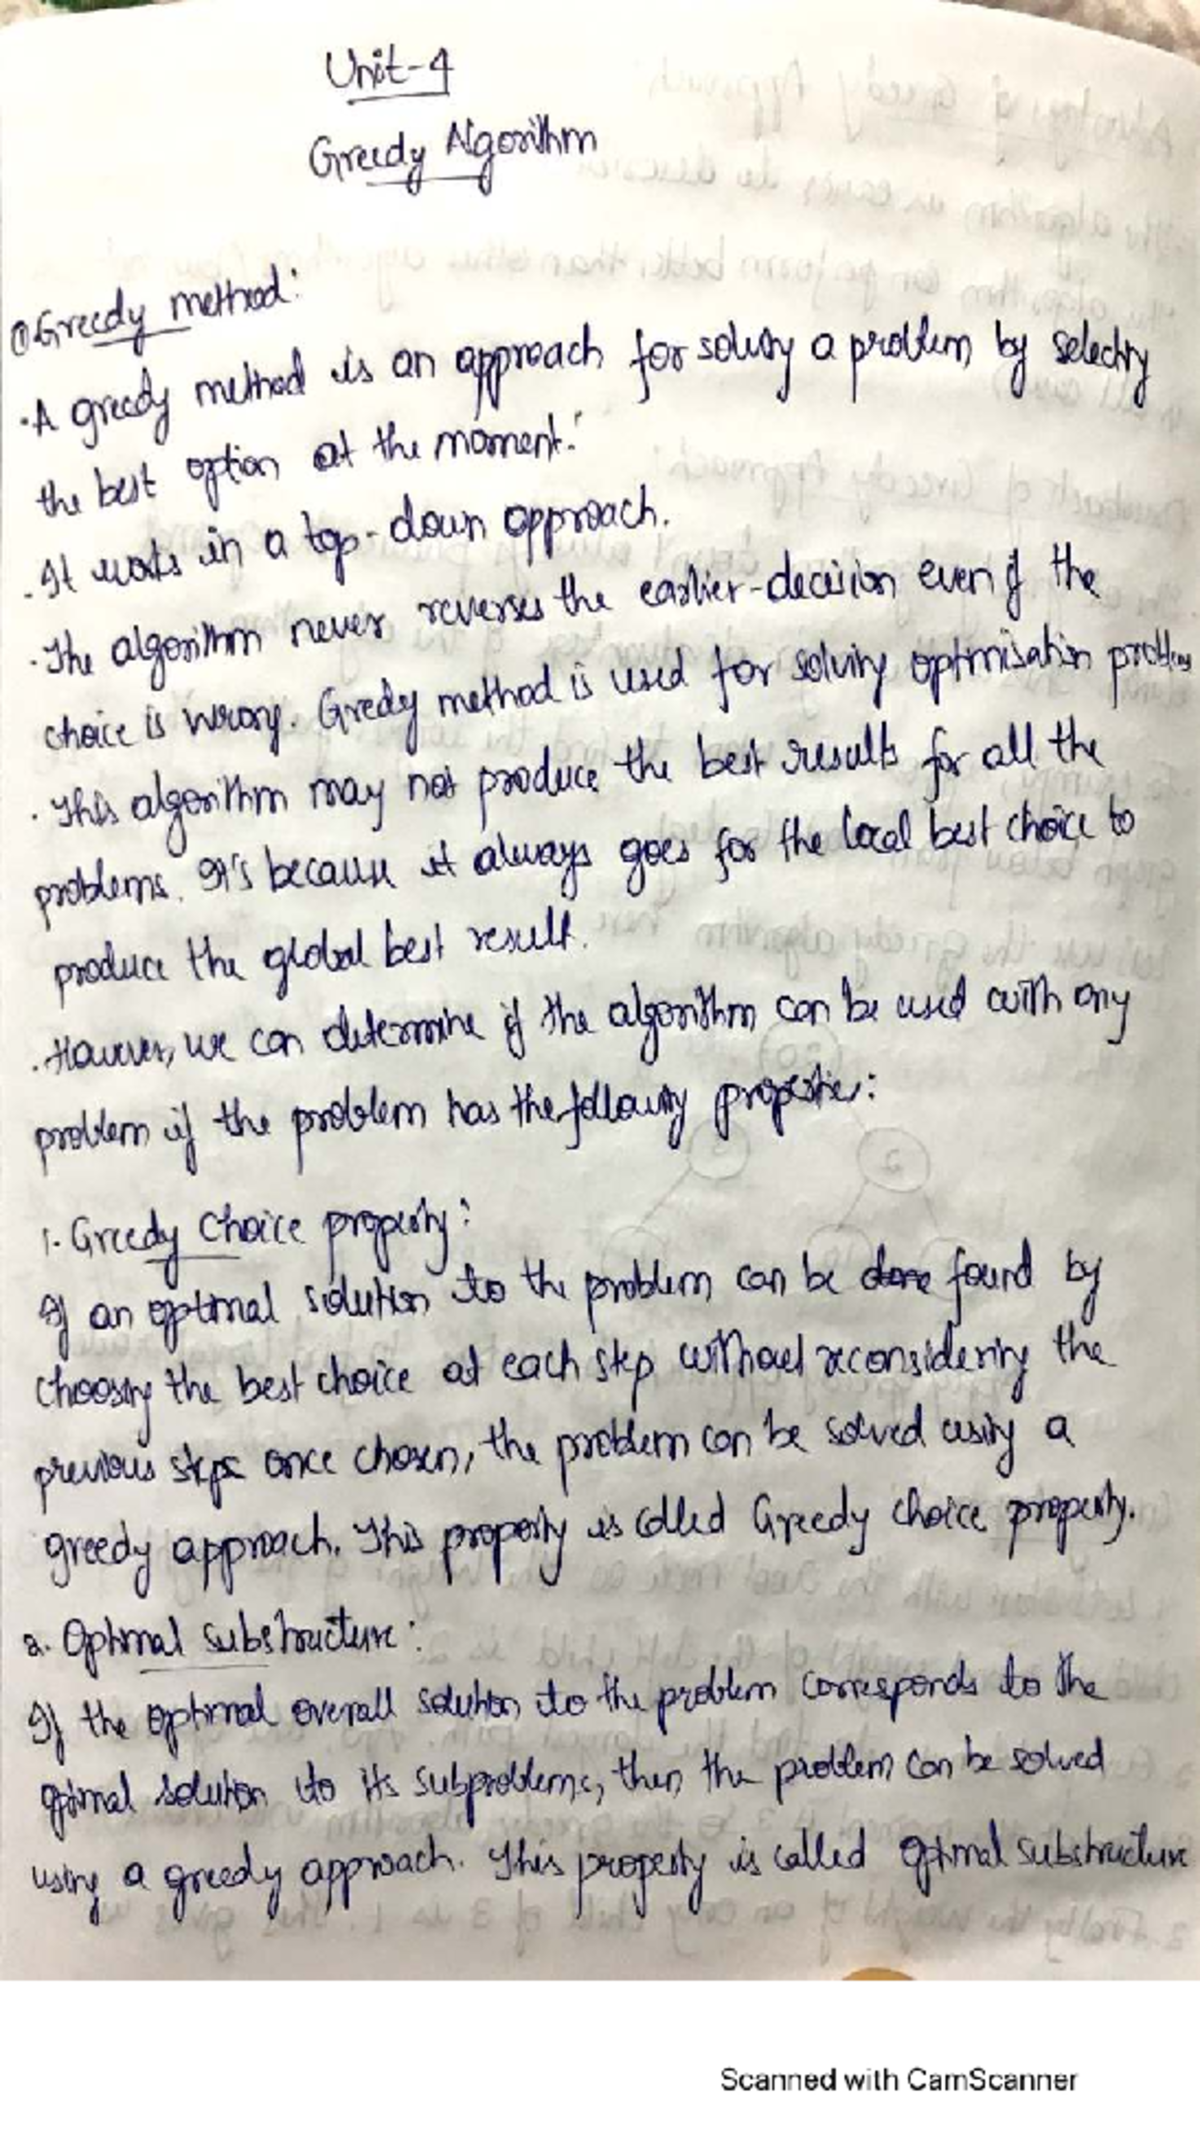 Unit-4
Greedy Algorithm
① Greedy method:
· A greedy method is an approach for solving a problem by selecting
the best option at the moment.
· It works in a top-down approach.
· The algorithm never reverses the earlier-decision even if the
choice is wrong. Gredy method is used for solving optimisation problems
· This algorithm may not produce the best results for all the
problems. It's because it always goes for the local best choice to
produce the global best result.
· However, we can determine if the algorithm can be used with any
problem if the problem has the following properties:
1. Greedy choice property:
If an optimal solution to the problem can be done found by
choosing the best choice at each step without reconsidering the
previous steps once chosen, the problem can be solved using a
greedy approach. This property is called Greedy choice property.
2. Optimal substructure:
If the optimal overall solution to the problem corresponds to the
optimal solution to its subproblems, then the problem can be solved
using a greedy approach. This property is called optimal substructure
Scanned with CamScanner